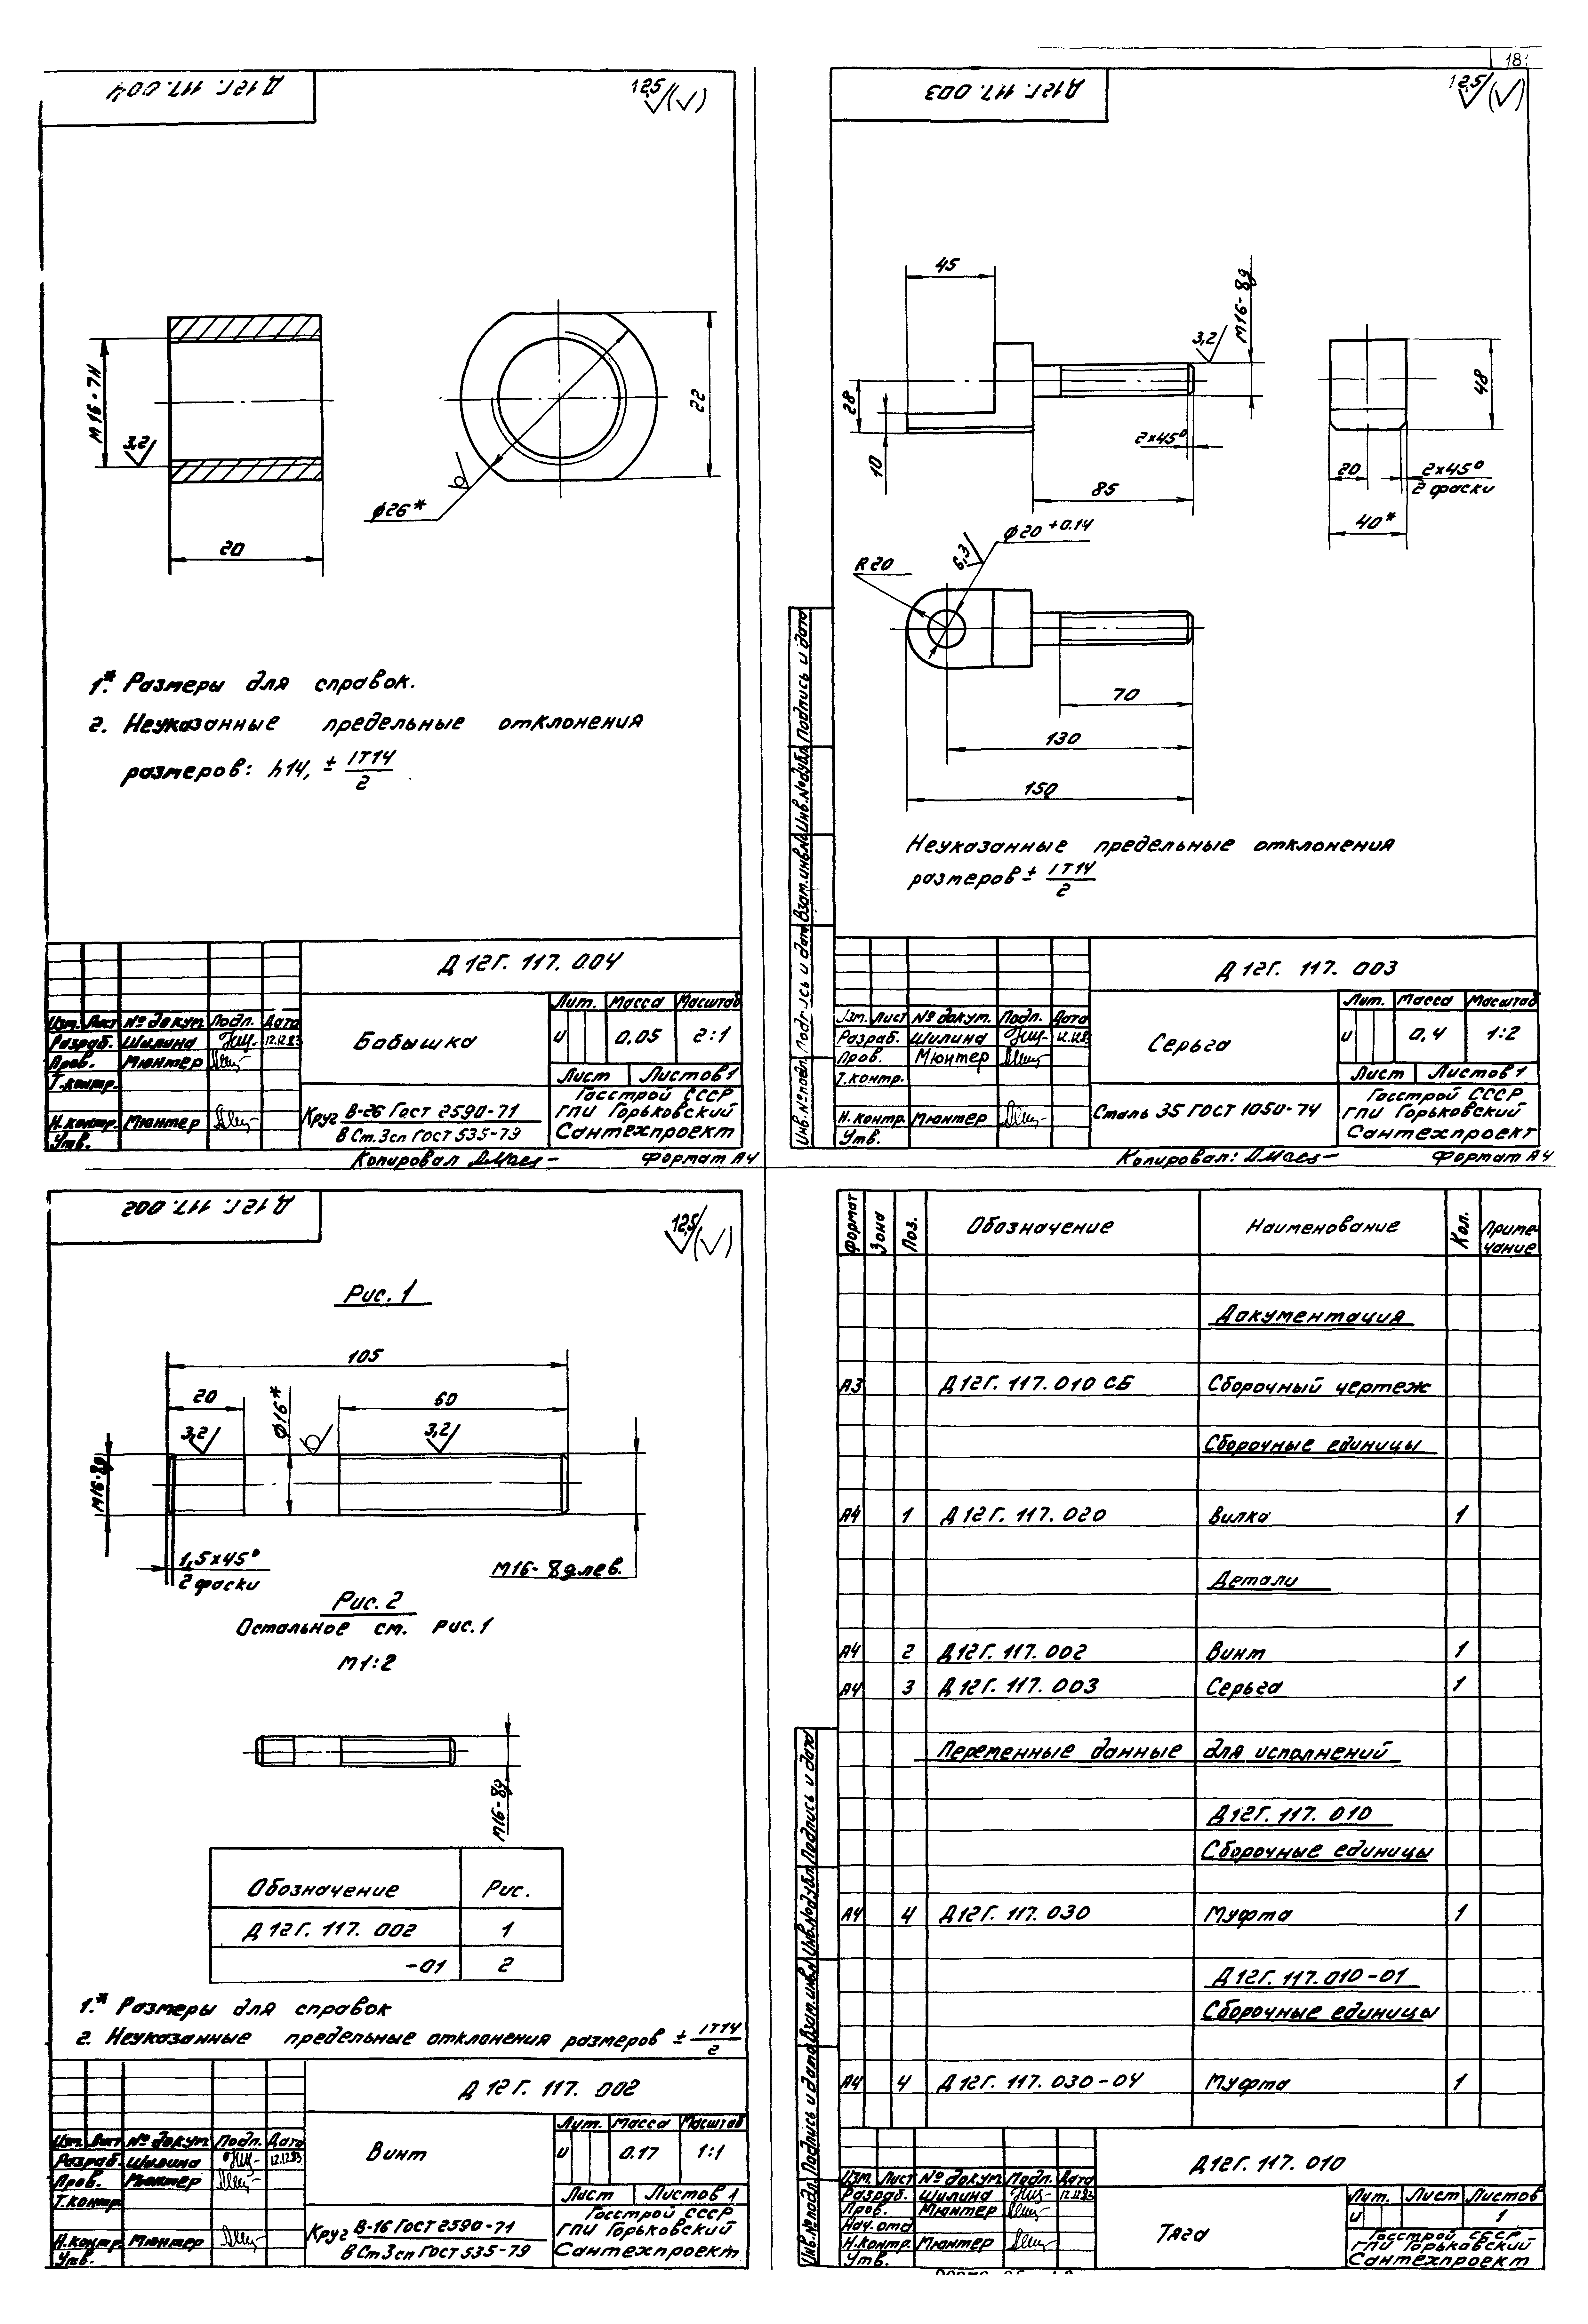 18
Д12Г. 117. 004
12,5 (√)
М16-7Н
3,2
20
22
ø26*
1.* Размеры для справок.
2. Неуказанные предельные отклонения
размеров: h14, ± IT14/2
Д 12Г. 117. 004
Лит. Масса Масштаб
Изм. Лист № докум. Подп. Дата
Разраб. Шилина 12.12.83
Пров. Мюнтер
Т.контр.
Н.контр. Мюнтер
Утв.
Бабышка
и 0,05 2:1
Лист Листов 1
Круг В-26 Гост 2590-71
В Ст.3сп Гост 535-79
Госстрой СССР
ГПИ Горьковский
Сантехпроект
Копировал
Формат А4
Д12Г. 117. 003
12,5 (√)
45
М16-8g
3,2
28
10
2х45°
85
48
20
2х45°
2 фаски
40*
R20
6,3
ø20 +0.14
70
130
150
Неуказанные предельные отклонения
размеров ± IT14/2
Инв.№подл. Подпись и дата Взам.инв.№ Инв.№дубл. Подпись и дата
Д 12Г. 117. 003
Лит. Масса Масштаб
Изм. Лист № докум. Подп. Дата
Разраб. Шилина 12.12.83
Пров. Мюнтер
Т.контр.
Н.контр. Мюнтер
Утв.
Серьга
и 0,4 1:2
Лист Листов 1
Сталь 35 ГОСТ 1050-74
Госстрой СССР
ГПИ Горьковский
Сантехпроект
Копировал:
Формат А4
Д12Г. 117. 002
12,5 (√)
Рис. 1
105
20
ø16*
60
3,2
3,2
М16-8g
1,5х45°
2 фаски
М16-8g лев.
Рис. 2
Остальное см. рис.1
М1:2
М16-8g
Обозначение Рис.
Д 12Г. 117. 002 1
-01 2
1.* Размеры для справок
2. Неуказанные предельные отклонения размеров ± IT14/2
Д 12Г. 117. 002
Лит. Масса Масштаб
Изм. Лист № докум. Подп. Дата
Разраб. Шилина 12.12.83
Пров. Мюнтер
Т.контр.
Н.контр. Мюнтер
Утв.
Винт
и 0.17 1:1
Лист Листов 1
Круг В-16 ГОСТ 2590-71
В Ст3сп Гост 535-79
Госстрой СССР
ГПИ Горьковский
Сантехпроект
Формат Зона Поз. Обозначение Наименование Кол. Приме-
чание
Документация
А3 Д12Г. 117. 010 СБ Сборочный чертеж
Сборочные единицы
А4 1 Д 12Г. 117. 020 Вилка 1
Детали
А4 2 Д12Г. 117. 002 Винт 1
А4 3 Д 12Г. 117. 003 Серьга 1
Переменные данные для исполнений
Д12Г. 117. 010
Сборочные единицы
А4 4 Д12Г. 117. 030 Муфта 1
Д12Г. 117. 010-01
Сборочные единицы
А4 4 Д 12Г. 117. 030-04 Муфта 1
Инв.№подл. Подпись и дата Взам.инв.№ Инв.№дубл. Подпись и дата
Д12Г. 117. 010
Изм. Лист № докум. Подп. Дата
Разраб. Шилина 12.12.83
Пров. Мюнтер
Нач.отд
Н.контр. Мюнтер
Утв.
Тяга
Лит. Лист Листов
и 1
Госстрой СССР
ГПИ Горьковский
Сантехпроект